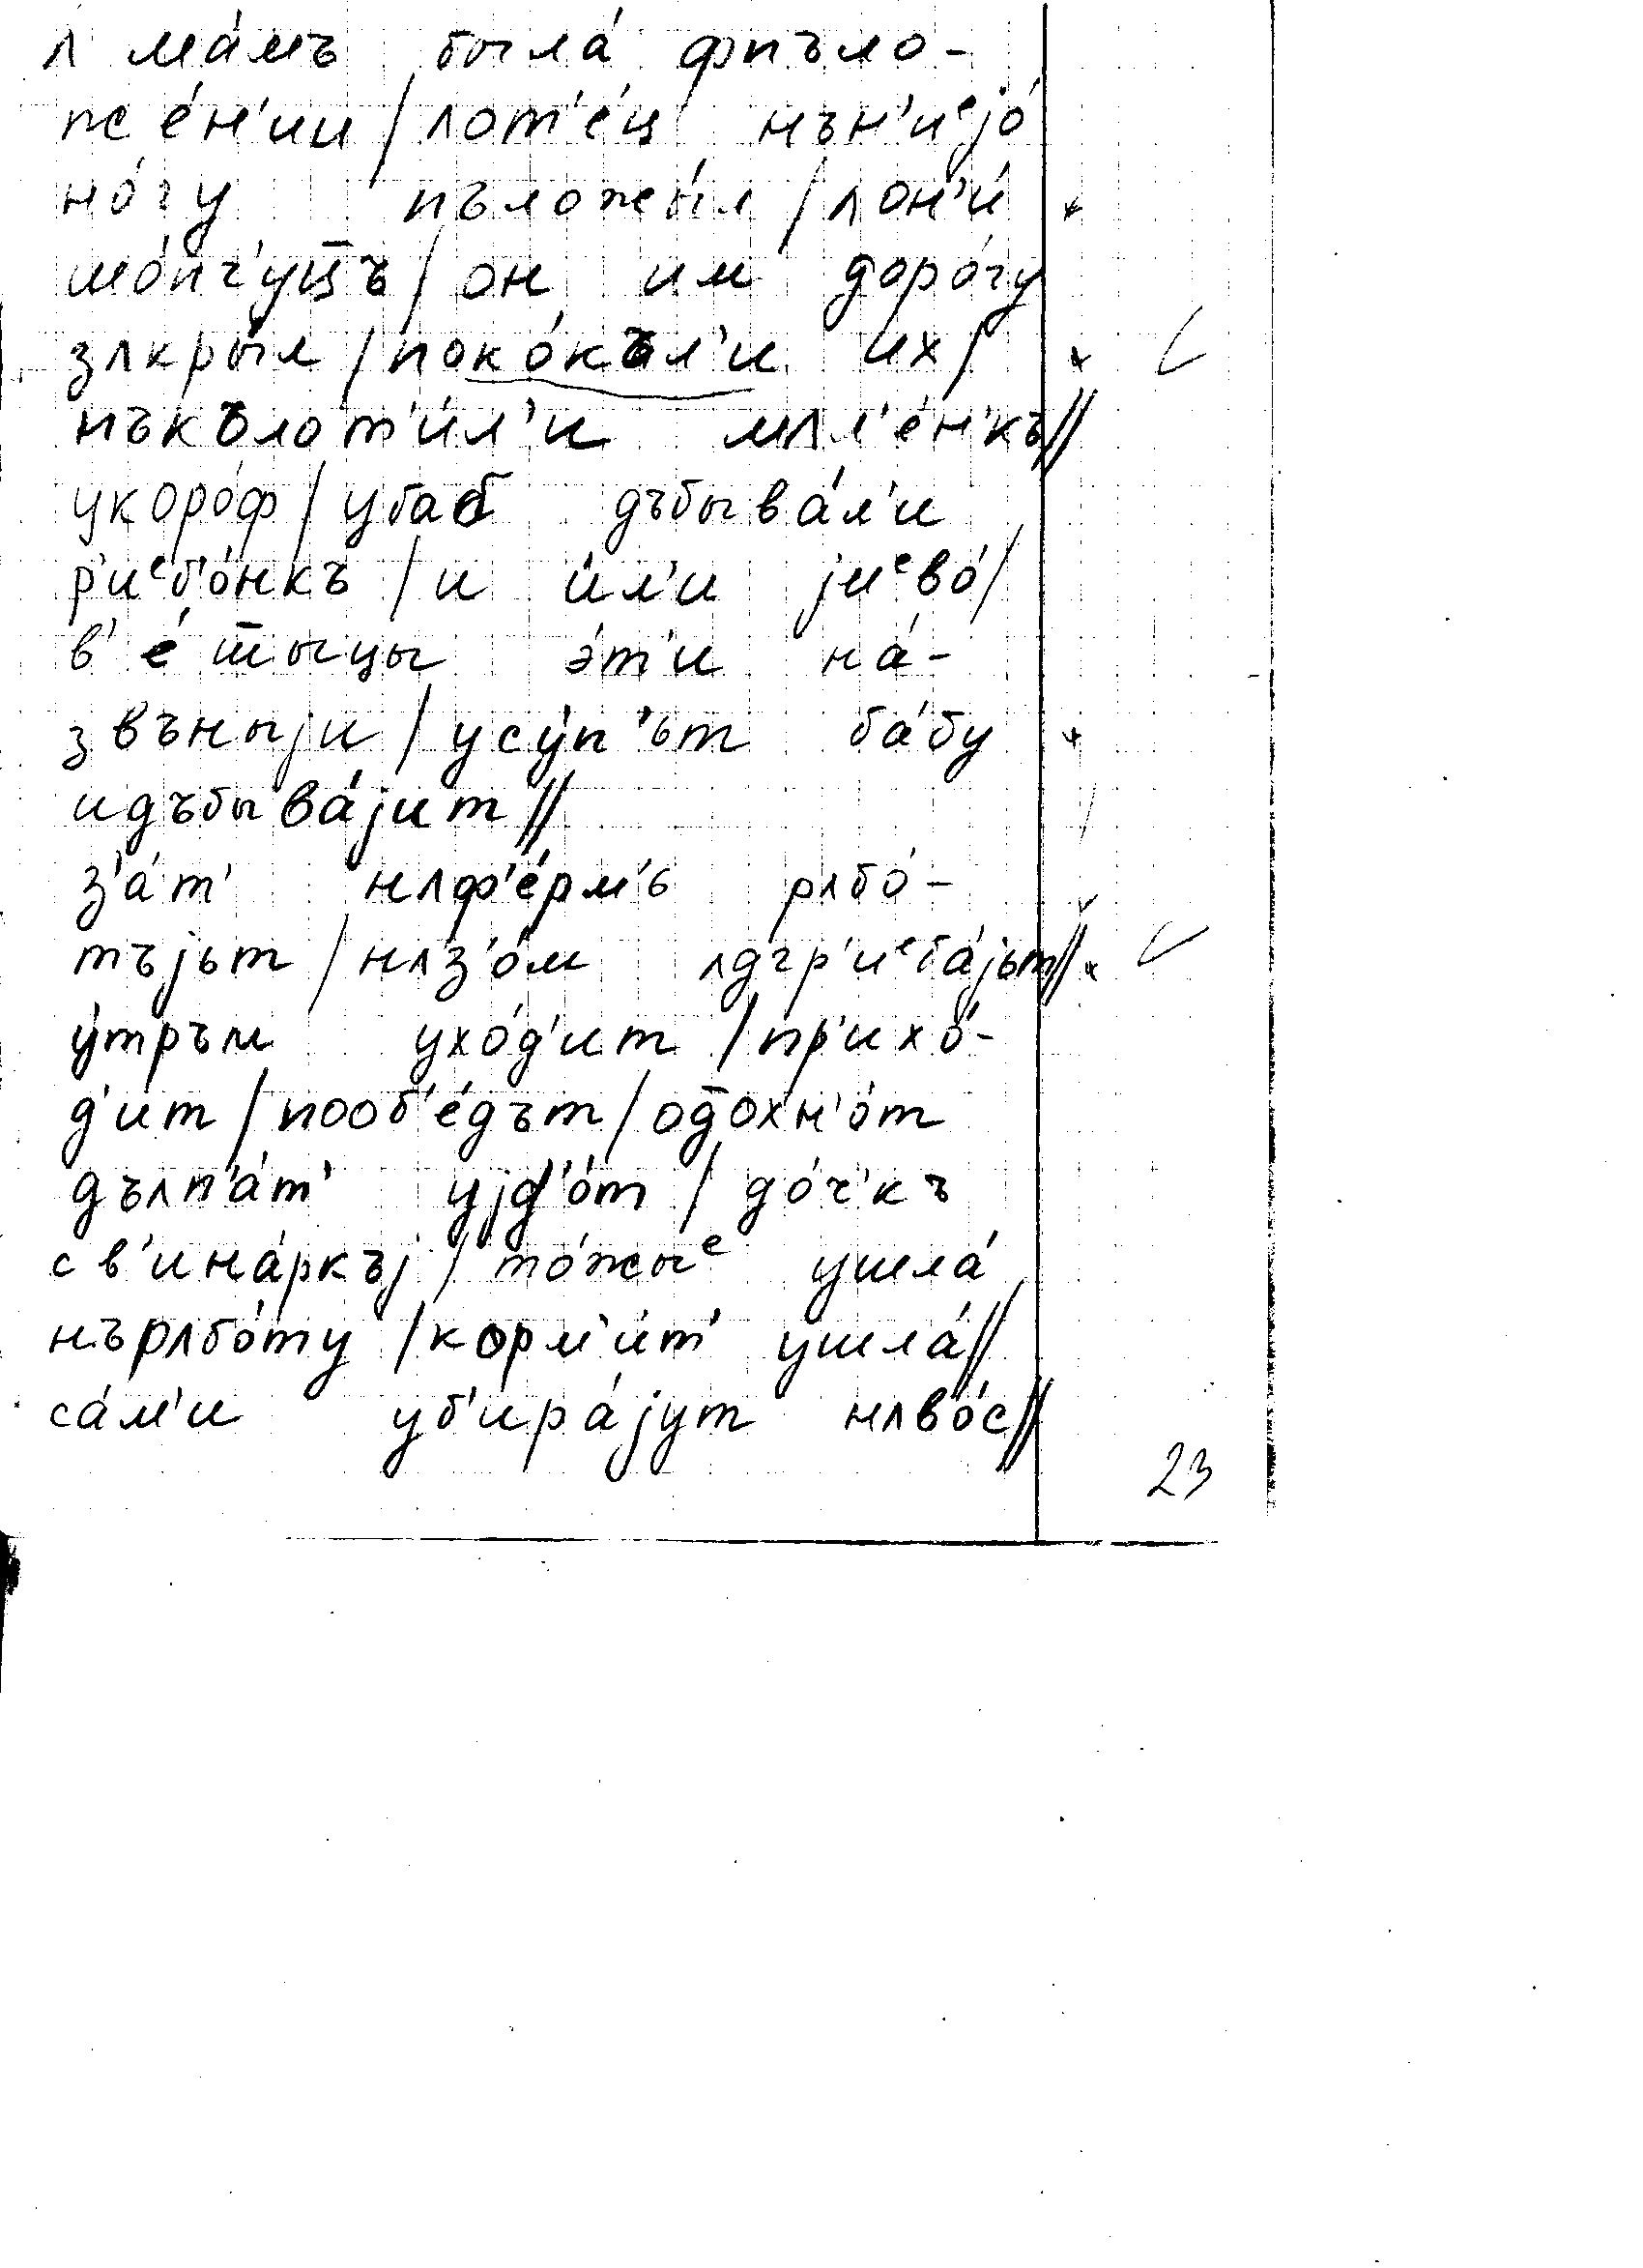 ʌ ма́мъ была́ фпъло-
же́н'ии / ʌот'е́ц нън'иᵉjо́
но́гу пъложы́л / ʌон'и́
шо́пч'уц̅ъ / он им доро́гу
зʌкры́л / поко́къл'и их /
нъкълот'и́л'и мʌл'е́н'къ //
укоро́ф / убаб дъбыва́л'и
р'иᵉб'о́нкъ / и и́л'и jиᵉво́ /
в'е́ш̅ыцы э́т'и на́-
звъныjи / усу́п'ьт ба́бу
идъбыва́jит //
з'а́т' нʌф'е́рм'ь рʌбо́-
тъjьт / нʌз'о́м ʌдгр'иᵉба́jьт //
у́тръм ухо́д'ит / пр'ихо́-
д'ит / пооб'е́дът / од̅охн'о́т
дъʌп'а́т' уjд'о́т / до́ч'къ
св'ина́ркъj / то́жыᵉ ушла́
нърʌбо́ту / корм'и́т' ушла́ //
са́м'и уб'ира́jут нʌво́с //
23